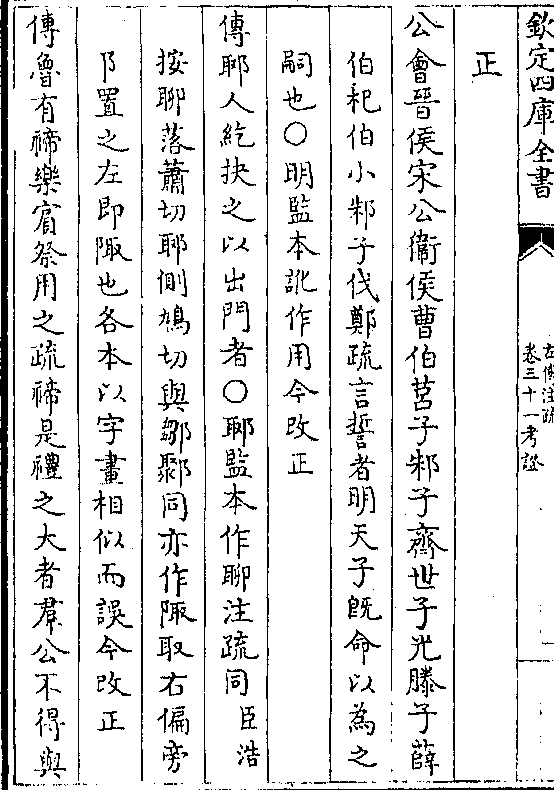 欽定四庫全書
左傳注疏
卷三十一考證
正
公會晉侯宋公衛侯曹伯莒子邾子齊世子光滕子薛
伯杞伯小邾子伐鄭疏言誓者明天子既命以為之
嗣也○明監本訛作用今改正
傳郰人紇抉之以出門者○郰監本作聊注疏同臣浩
按聊落蕭切郰側鳩切與鄒鄹同亦作陬取右偏旁
阝置之左即陬也各本以字畫相似而誤今改正
傳魯有禘樂賓祭用之疏禘是禮之大者羣公不得與